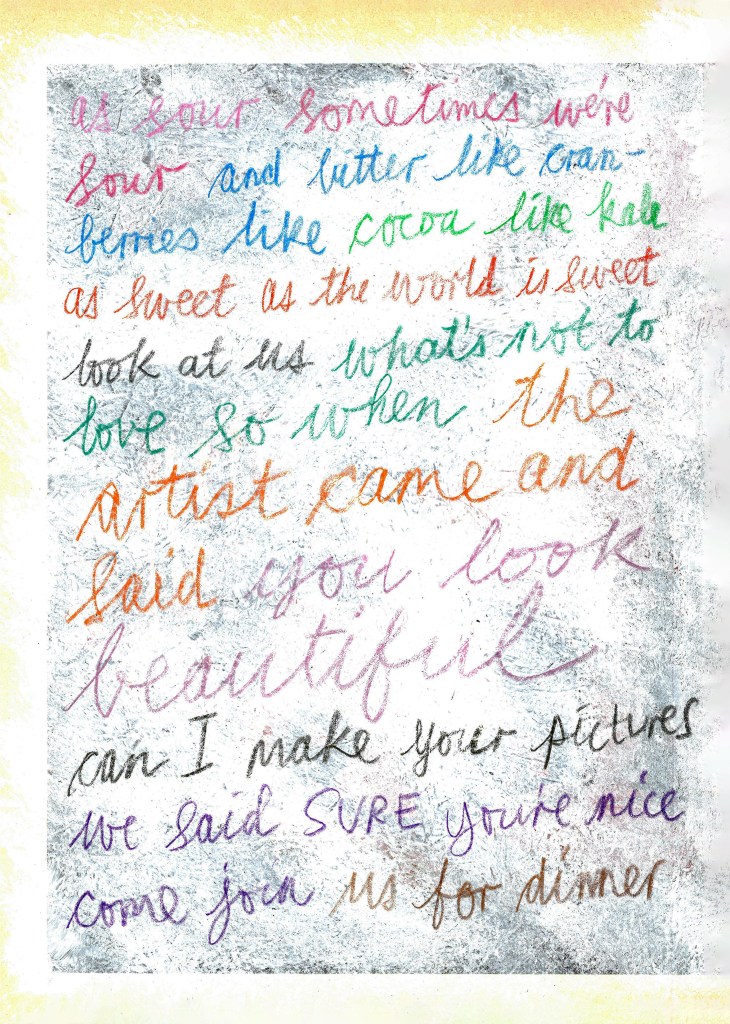 as sour sometimes we're
sour and bitter like cran-
berries like cocoa like kale
as sweet as the world is sweet
look at us what's not to
love so when the
artist came and
said you look
beautiful
can I make your pictures
we said SURE you're nice
come join us for dinner